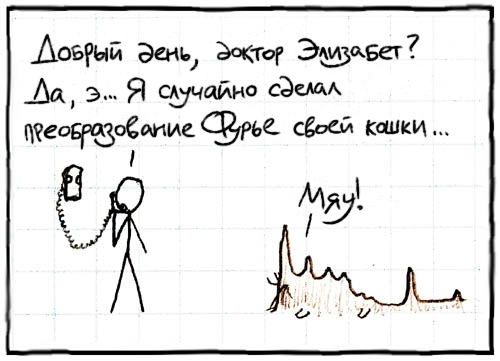 Добрый день, доктор Элизабет?
Да, э... Я случайно сделал
преобразование Фурье своей кошки...
Мяу!